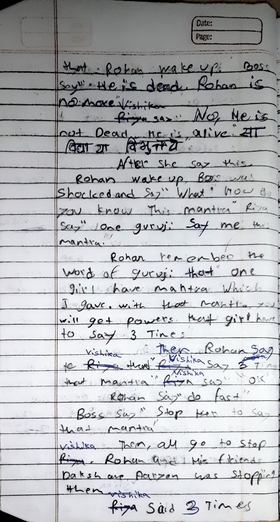 Date:
Page:
that. Rohan wake up. Boss
say" He is dead. Rohan is
no more
Vishika
Riya say" No, He is
not Dead. He is alive या
विद्या या
After she say this
Rohan wake up. Boss was
Shocked and say" What! How
you know This mantra" Riya
Say" one guruji Say me
mantra."
Rohan remember the
word of guruji that one
girl have mantra which
I gave. with that mantra you
will get powers that girl have
to say 3 Time.
Then Rohan Say
vishika Vishika
to Riya that" Riya Say 3
Vishika
that mantra" Riya say" "Ok"
Rohan Say" do fast"
Boss say" Stop her to say
that mantra"
vishika Then, all go to stop
Riya. Rohan and His friends
Daksh and Aaryan was Stopping
them vishika
Riya Said 3 Times